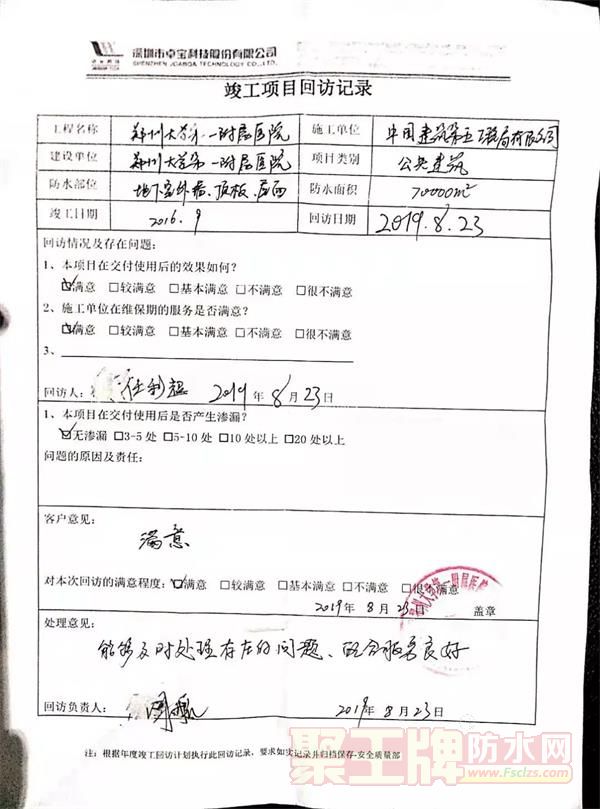 深圳市卓宝科技股份有限公司
SHENZHEN JOABOA TECHNOLOGY CO.,LTD
竣工项目回访记录
工程名称 郑州大学第一附属医院 施工单位 中国建筑第五工程局有限公司
建设单位 郑州大学第一附属医院 项目类别 公共建筑
防水部位 地下室外墙、顶板、屋面 防水面积 70000m²
竣工日期 2016.9 回访日期 2019.8.23
回访情况及存在问题:
1、本项目在交付使用后的效果如何?
☑满意 □较满意 □基本满意 □不满意 □很不满意
2、施工单位在维保期的服务是否满意?
☑满意 □较满意 □基本满意 □不满意 □很不满意
3、
回访人: 任利超 2019年8月23日
1、本项目在交付使用后是否产生渗漏?
☑无渗漏 □3-5处 □5-10处 □10处以上 □20处以上
问题的原因及责任:
客户意见:
满意
对本次回访的满意程度: ☑满意 □较满意 □基本满意 □不满意 □很不满意
2019年8月23日 盖章
处理意见:
能够及时处理存在的问题、配合服务良好
回访负责人: 2019年8月23日
注: 根据年度竣工回访计划执行此回访记录, 要求如实记录并归档保存-安全质量部
聚王牌防水网
www.Fsclzs.com